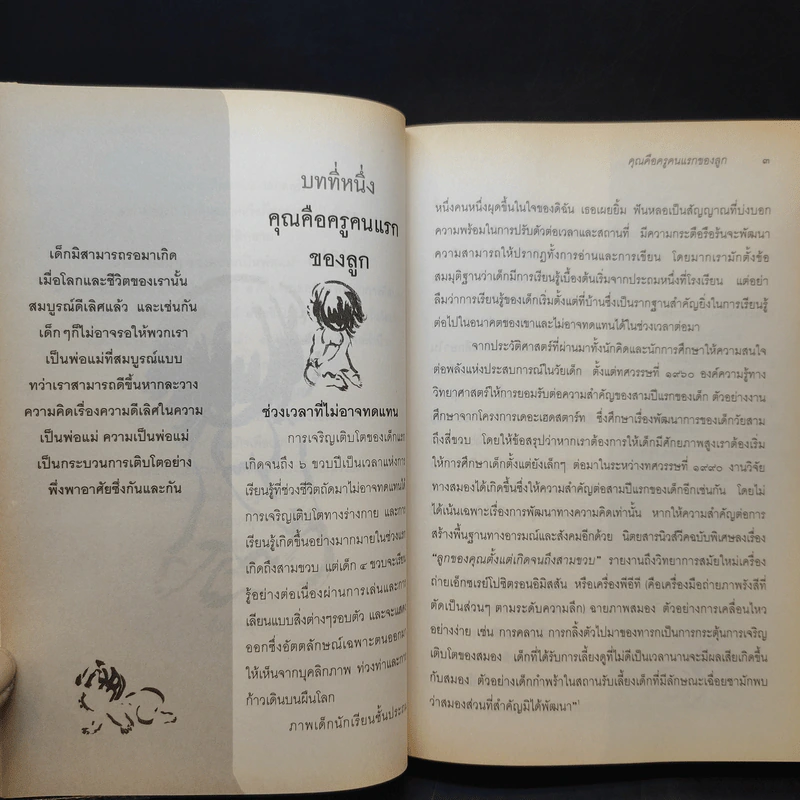 เด็กมิสามารถรอมาเกิด
เมื่อโลกและชีวิตของเรานั้น
สมบูรณ์ดีเลิศแล้ว และเช่นกัน
เด็กๆก็ไม่อาจรอให้พวกเรา
เป็นพ่อแม่ที่สมบูรณ์แบบ
ทว่าเราสามารถดีขึ้นหากละวาง
ความคิดเรื่องความดีเลิศในความ
เป็นพ่อแม่ ความเป็นพ่อแม่
เป็นกระบวนการเติบโตอย่าง
พึ่งพาอาศัยซึ่งกันและกัน
บทที่หนึ่ง
คุณคือครูคนแรก
ของลูก
ช่วงเวลาที่ไม่อาจทดแทน
การเจริญเติบโตของเด็กแรก
เกิดจนถึง ๖ ขวบปีเป็นเวลาแห่งการ
เรียนรู้ที่ช่วงชีวิตถัดมาไม่อาจทดแทนได้
การเจริญเติบโตทางร่างกาย และการ
เรียนรู้เกิดขึ้นอย่างมากมายในช่วงแรก
เกิดถึงสามขวบ แต่เด็ก ๔ ขวบจะเรียน
รู้อย่างต่อเนื่องผ่านการเล่นและการ
เลียนแบบสิ่งต่างๆรอบตัว และจะแสดง
ออกซึ่งอัตตลักษณ์เฉพาะตนออกมา
ให้เห็นจากบุคลิกภาพ ท่วงท่าและการ
ก้าวเดินบนผืนโลก
ภาพเด็กนักเรียนชั้นประถม
คุณคือครูคนแรกของลูก ๓
หนึ่งคนหนึ่งผุดขึ้นในใจของดิฉัน เธอเผยยิ้ม ฟันหลอเป็นสัญญาณที่บ่งบอก
ความพร้อมในการปรับตัวต่อเวลาและสถานที่ มีความกระตือรือร้นจะพัฒนา
ความสามารถให้ปรากฏทั้งการอ่านและการเขียน โดยมากเรามักตั้งข้อ
สมมุติฐานว่าเด็กมีการเรียนรู้เบื้องต้นเริ่มจากประถมหนึ่งที่โรงเรียน แต่อย่า
ลืมว่าการเรียนรู้ของเด็กเริ่มตั้งแต่ที่บ้านซึ่งเป็นรากฐานสำคัญยิ่งในการเรียนรู้
ต่อไปในอนาคตของเขาและไม่อาจทดแทนได้ในช่วงเวลาต่อมา
จากประวัติศาสตร์ที่ผ่านมาทั้งนักคิดและนักการศึกษาให้ความสนใจ
ต่อพลังแห่งประสบการณ์ในวัยเด็ก ตั้งแต่ทศวรรษที่ ๑๙๖๐ องค์ความรู้ทาง
วิทยาศาสตร์ให้การยอมรับต่อความสำคัญของสามปีแรกของเด็ก ตัวอย่างงาน
ศึกษาจากโครงการเดอะเฮดสตาร์ท ซึ่งศึกษาเรื่องพัฒนาการของเด็กวัยสาม
ถึงสี่ขวบ โดยให้ข้อสรุปว่าหากเราต้องการให้เด็กมีศักยภาพสูงเราต้องเริ่ม
ให้การศึกษาเด็กตั้งแต่ยังเล็กๆ ต่อมาในระหว่างทศวรรษที่ ๑๙๙๐ งานวิจัย
ทางสมองได้เกิดขึ้นซึ่งให้ความสำคัญต่อสามปีแรกของเด็กอีกเช่นกัน โดยไม่
ได้เน้นเฉพาะเรื่องการพัฒนาทางความคิดเท่านั้น หากให้ความสำคัญต่อการ
สร้างพื้นฐานทางอารมณ์และสังคมอีกด้วย นิตยสารนิวส์วีคฉบับพิเศษลงเรื่อง
"ลูกของคุณตั้งแต่เกิดจนถึงสามขวบ" รายงานถึงวิทยาการสมัยใหม่เครื่อง
ถ่ายเอ็กซเรย์โปซิตรอนอิมิสสัน หรือเครื่องพีอีที (คือเครื่องมือถ่ายภาพรังสีที่
ตัดเป็นส่วนๆ ตามระดับความลึก) ฉายภาพสมอง ตัวอย่างการเคลื่อนไหว
อย่างง่าย เช่น การคลาน การกลิ้งตัวไปมาของทารกเป็นการกระตุ้นการเจริญ
เติบโตของสมอง เด็กที่ได้รับการเลี้ยงดูที่ไม่ดีเป็นเวลานานจะมีผลเสียเกิดขึ้น
กับสมอง ตัวอย่างเด็กกำพร้าในสถานรับเลี้ยงเด็กที่มีลักษณะเฉื่อยชามักพบ
ว่าสมองส่วนที่สำคัญมิได้พัฒนา"¹